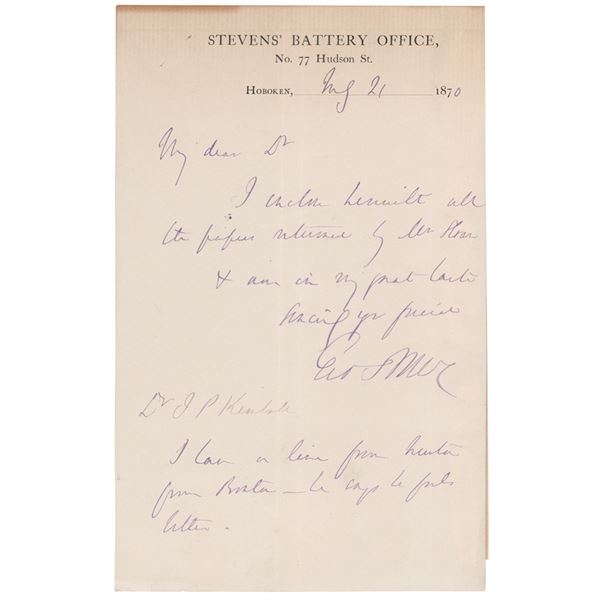 STEVENS' BATTERY OFFICE,
No. 77 Hudson St.
HOBOKEN, Aug 21 1870
My dear Dr
I enclose herewith all
the papers returned by Mr Sloan
& am in my great haste
Sincerely yr friend
Geo B McC
Dr J P Kimball
I have a line from
from Boston — he says he feels
better.